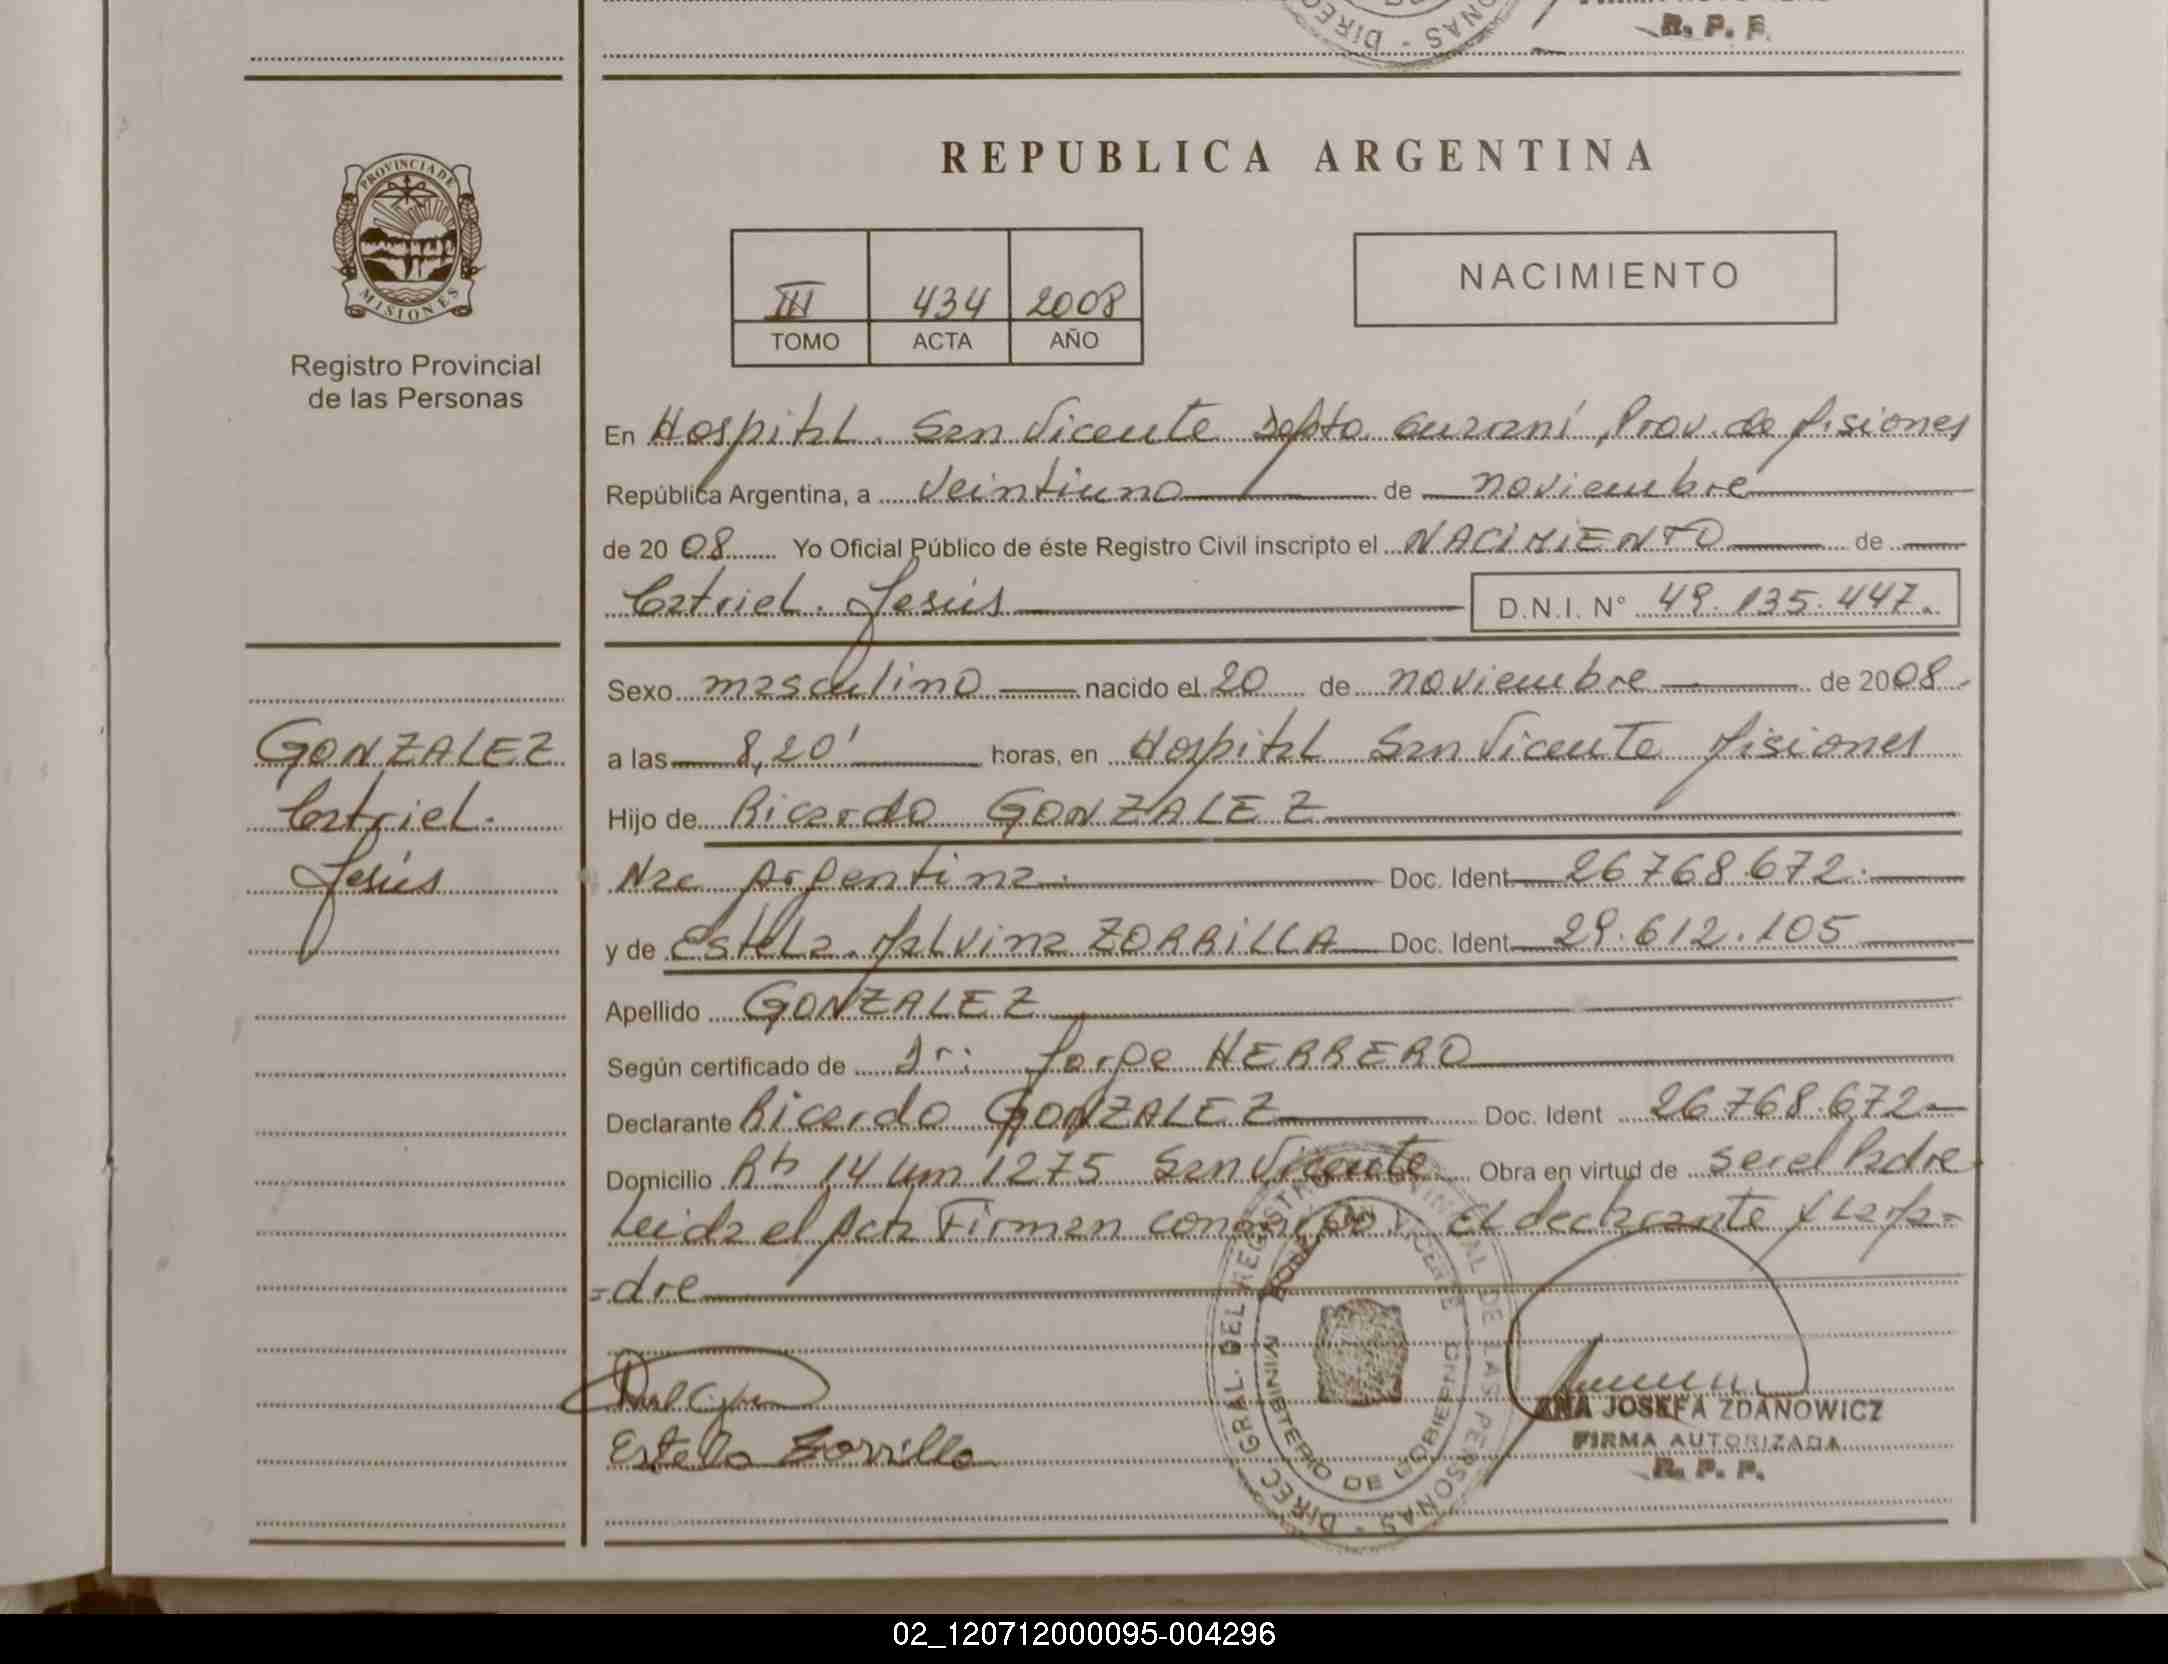 R. P. P.
REPUBLICA ARGENTINA
PROVINCIA DE MISIONES
Registro Provincial
de las Personas
III 434 2008
TOMO ACTA AÑO
NACIMIENTO
En Hospital San Vicente Dpto. Guaraní, Prov. de Misiones
República Argentina, a veintiuno de noviembre
de 2008 Yo Oficial Público de éste Registro Civil inscripto el NACIMIENTO de
Catriel Jesús D.N.I. N° 49.135.447.
Sexo masculino nacido el 20 de noviembre de 2008
a las 8,20' horas, en Hospital San Vicente Misiones
GONZALEZ
Catriel
Jesús
Hijo de Ricardo GONZALEZ
Nac Argentina Doc. Ident 26.768.672.
y de Estela Malvina ZORRILLA Doc. Ident 29.612.105
Apellido GONZALEZ
Según certificado de Dr: Jorge HERRERO
Declarante Ricardo GONZALEZ Doc. Ident 26.768.672
Domicilio Rta 14 Km 1275 San Vicente Obra en virtud de ser el Padre
Leida el Acta Firman conmigo El declarante y La Ma=
=dre
Estella Zorrilla
DIREC. GRAL. DEL REGISTRO PROVINCIAL DE LAS PERSONAS
MINISTERIO DE GOBIERNO
ANA JOSEFA ZDANOWICZ
FIRMA AUTORIZADA
R. P. P.
02_120712000095-004296